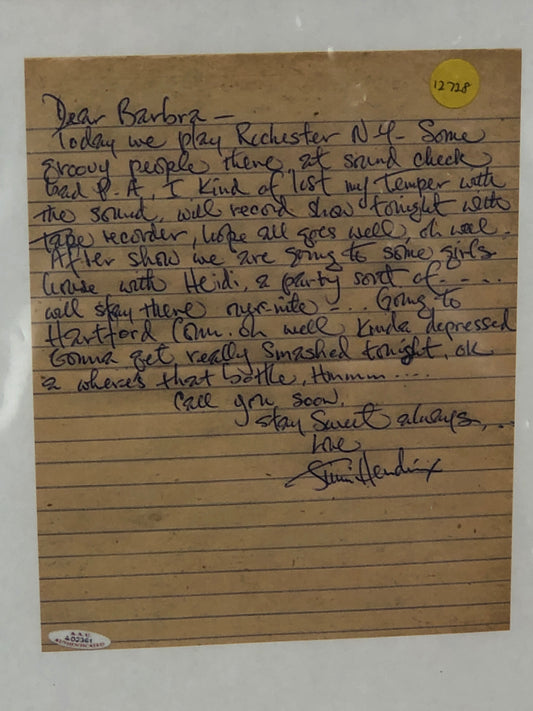 12728
Dear Barbra —
Today we play Rochester N.Y. Some
groovy people there, at sound check
bad P.A, I kind of lost my temper with
the sound. will record show tonight with
tape recorder, hope all goes well, oh well.
After show we are going to some girls
house with Heidi, a party sort of.....
will stay there over-nite .... Going to
Hartford Conn. oh well kinda depressed
Gonna get really smashed tonight, ok
a where's that bottle, Hmmm....
Call you soon.
Stay Sweet always,..
Love
Jimi Hendrix
A02361
AUTHENTICATED